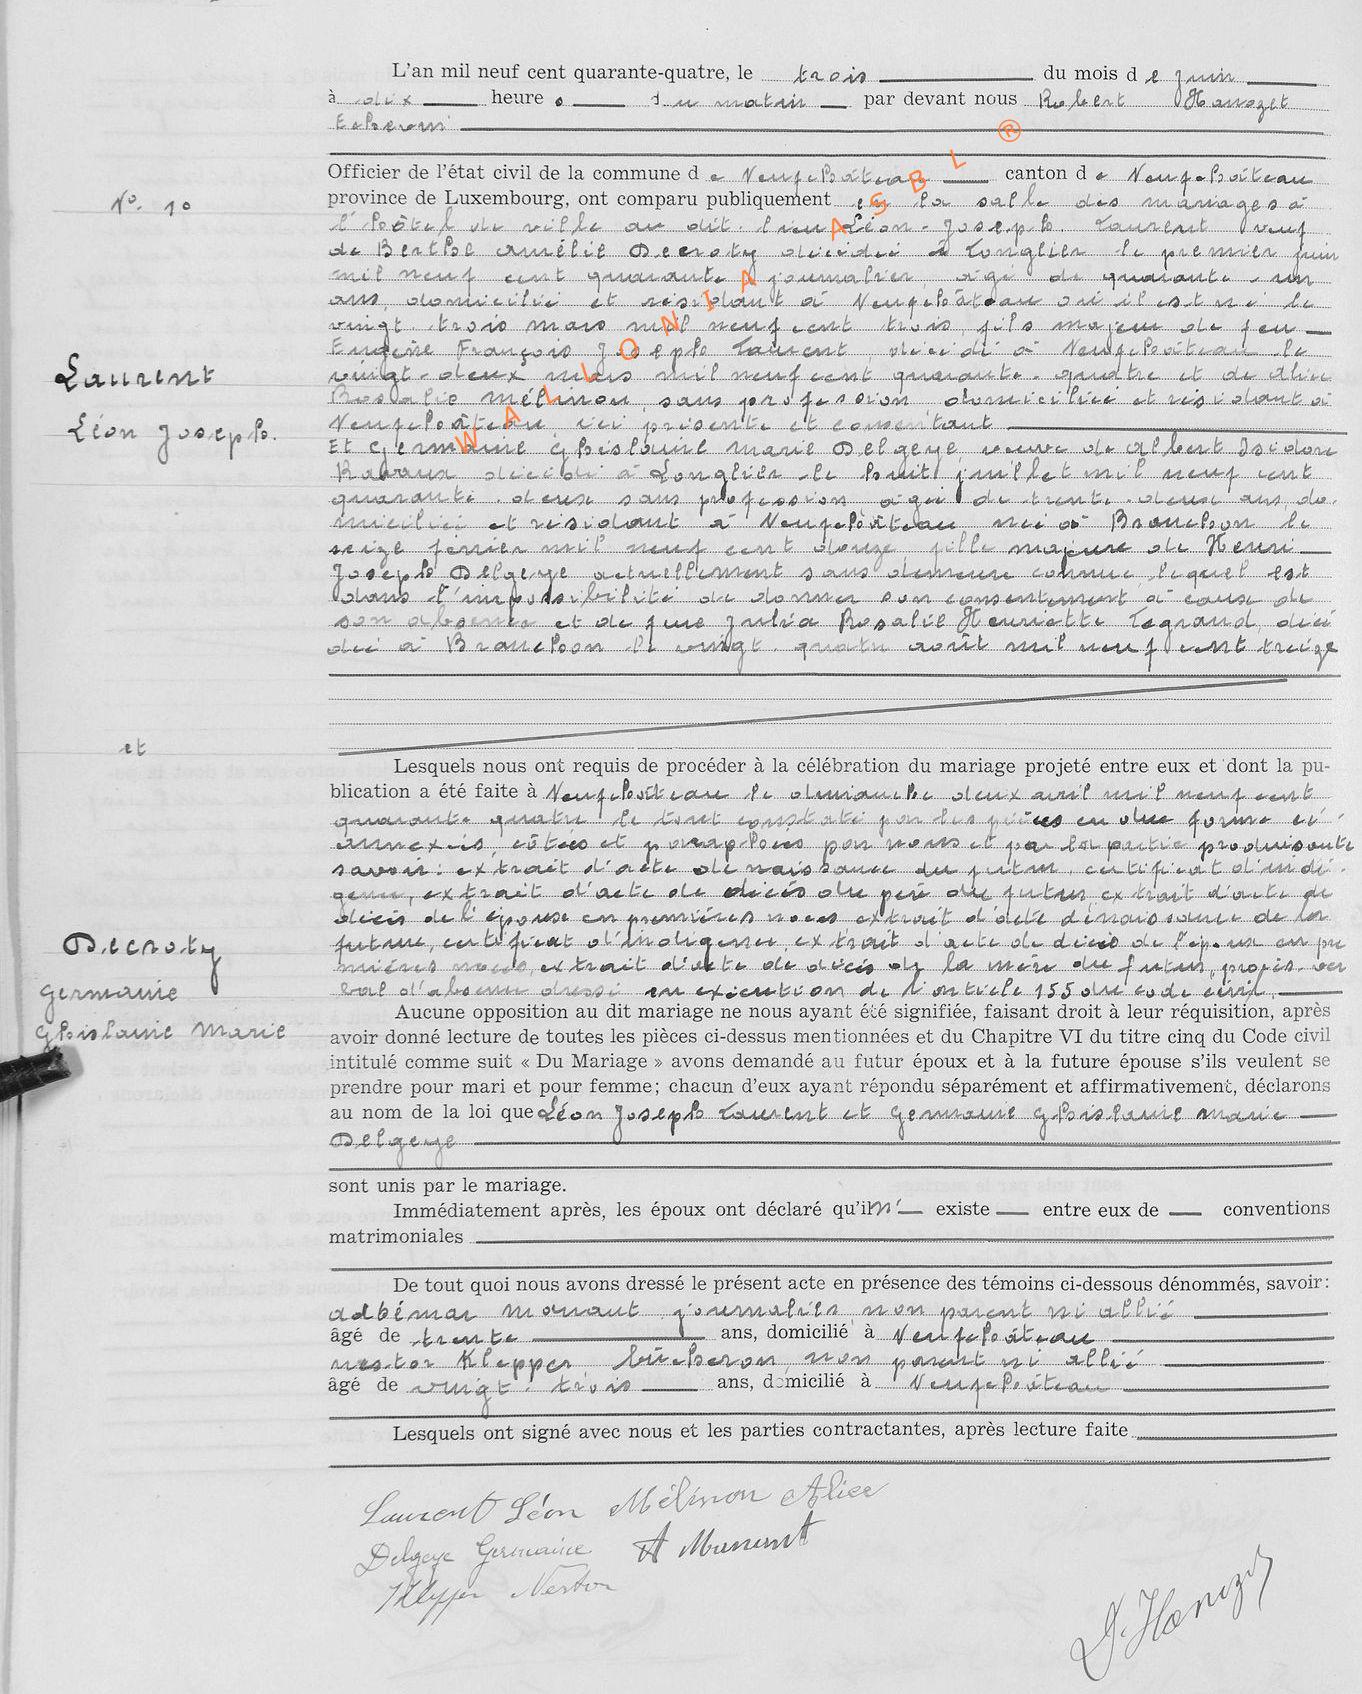 L'an mil neuf cent quarante-quatre, le trois du mois de juin
à dix heures du matin par devant nous Robert Hanozet
Echevin
Officier de l'état civil de la commune de Neufchâteau canton de Neufchâteau
No. 10
province de Luxembourg, ont comparu publiquement en la salle des mariages à
l'hôtel de ville au dit lieu Léon-Joseph Laurent veuf
de Berthe Amélie Decroty décédée à Longlier le premier juin
mil neuf cent quarante, journalier, âgé de quarante-un
ans, domicilié et résidant à Neufchâteau où il est né le
vingt-trois mars mil neuf cent trois, fils majeur de feu
Eugène François Joseph Laurent, décédé à Neufchâteau le
vingt-deux mars mil neuf cent quarante-quatre et de Alice
Rosalie Mélinon, sans profession domiciliée et résidant à
Neufchâteau ici présente et consentant
Laurent
Léon Joseph.
Et Germaine Ghislaine Marie Delgeye, veuve de Albert Isidore
Ravaux décédé à Longlier le huit juillet mil neuf cent
quarante-deux sans profession âgée de trente-deux ans, do-
miciliée et résidant à Neufchâteau née à Branchon le
seize février mil neuf cent douze, fille majeure de Henri
Joseph Delgeye actuellement sans demeure connue, lequel est
dans l'impossibilité de donner son consentement à cause de
son absence et de feue Julia Rosalie Henriette Legrand, décé
dée à Branchon le vingt-quatre août mil neuf cent treize
et
Lesquels nous ont requis de procéder à la célébration du mariage projeté entre eux et dont la pu-
blication a été faite à Neufchâteau le dimanche deux avril mil neuf cent
quarante quatre le tout constaté par les pièces en due forme ci-
annexées, côtées et paraphées par nous et par la partie produisante
savoir: extrait d'acte de naissance du futur, certificat d'indi-
gence, extrait d'acte de décès du père du futur extrait d'acte de
décès de l'épouse en premières noces extrait d'acte de naissance de la
future, certificat d'indigence, extrait d'acte de décès de l'époux en pre
mières noces, extrait d'acte de décès de la mère du futur, procès-ver
bal d'absence dressé en exécution de l'article 155 du code civil.
Decroty
Germanie
Ghislanie Marie
Aucune opposition au dit mariage ne nous ayant été signifiée, faisant droit à leur réquisition, après
avoir donné lecture de toutes les pièces ci-dessus mentionnées et du Chapitre VI du titre cinq du Code civil
intitulé comme suit « Du Mariage » avons demandé au futur époux et à la future épouse s'ils veulent se
prendre pour mari et pour femme; chacun d'eux ayant répondu séparément et affirmativement, déclarons
au nom de la loi que Léon Joseph Laurent et Germaine Ghislaine Marie
Delgeye
sont unis par le mariage.
Immédiatement après, les époux ont déclaré qu'il n' existe entre eux de conventions
matrimoniales
De tout quoi nous avons dressé le présent acte en présence des témoins ci-dessous dénommés, savoir:
Adhémar Manant journalier, non parent ni allié
âgé de trente ans, domicilié à Neufchâteau
Nestor Klepper bûcheron, non parent ni allié
âgé de vingt-trois ans, domicilié à Neufchâteau
Lesquels ont signé avec nous et les parties contractantes, après lecture faite
Laurent Léon Mélinon Alice
Delgeye Germaine A Manant
Klepper Nestor
Hanozet
WALLONIA ASBL ®